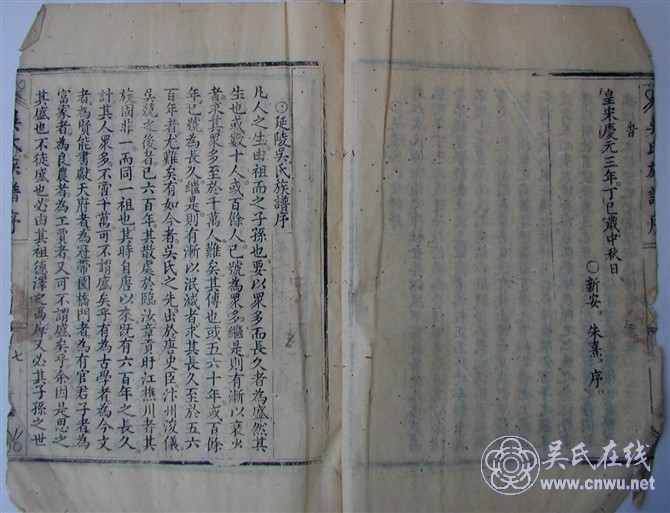 皇宋慶元三年丁巳歲中秋日
○新安。朱熹。序。
吳氏族譜序
○延陵吳氏族譜序
凡人之生由祖而之子孫也要以眾多而長久者為盛然其
生也或數十人或百餘人已號為眾多繼是則有漸以衰少
者求其眾多至於千萬人難矣其傳也或五六十年或百餘
年已號為長久繼是則有漸以泯滅者求其長久至於五六
百年者尤難矣有如今者吳氏之先出於唐史臣汴州浚儀
吳兢之後者已六百年其散處於臨汝章貢盱江樵川者其
族固非一而同一祖也其時自唐以來既有六百年之長久
計其人眾多不啻千萬可不謂盛矣乎有為古學者為今文
者為賢能書獻天府者為冠帶圜橋門者為有官君子者為
富家者為良農者為工賈者又可不謂盛矣乎余因是思之
其盛也不徒盛也必由其祖德澤之高厚又必其子孫之世
吳氏族譜序
七
吴氏在线
www.cnwu.net